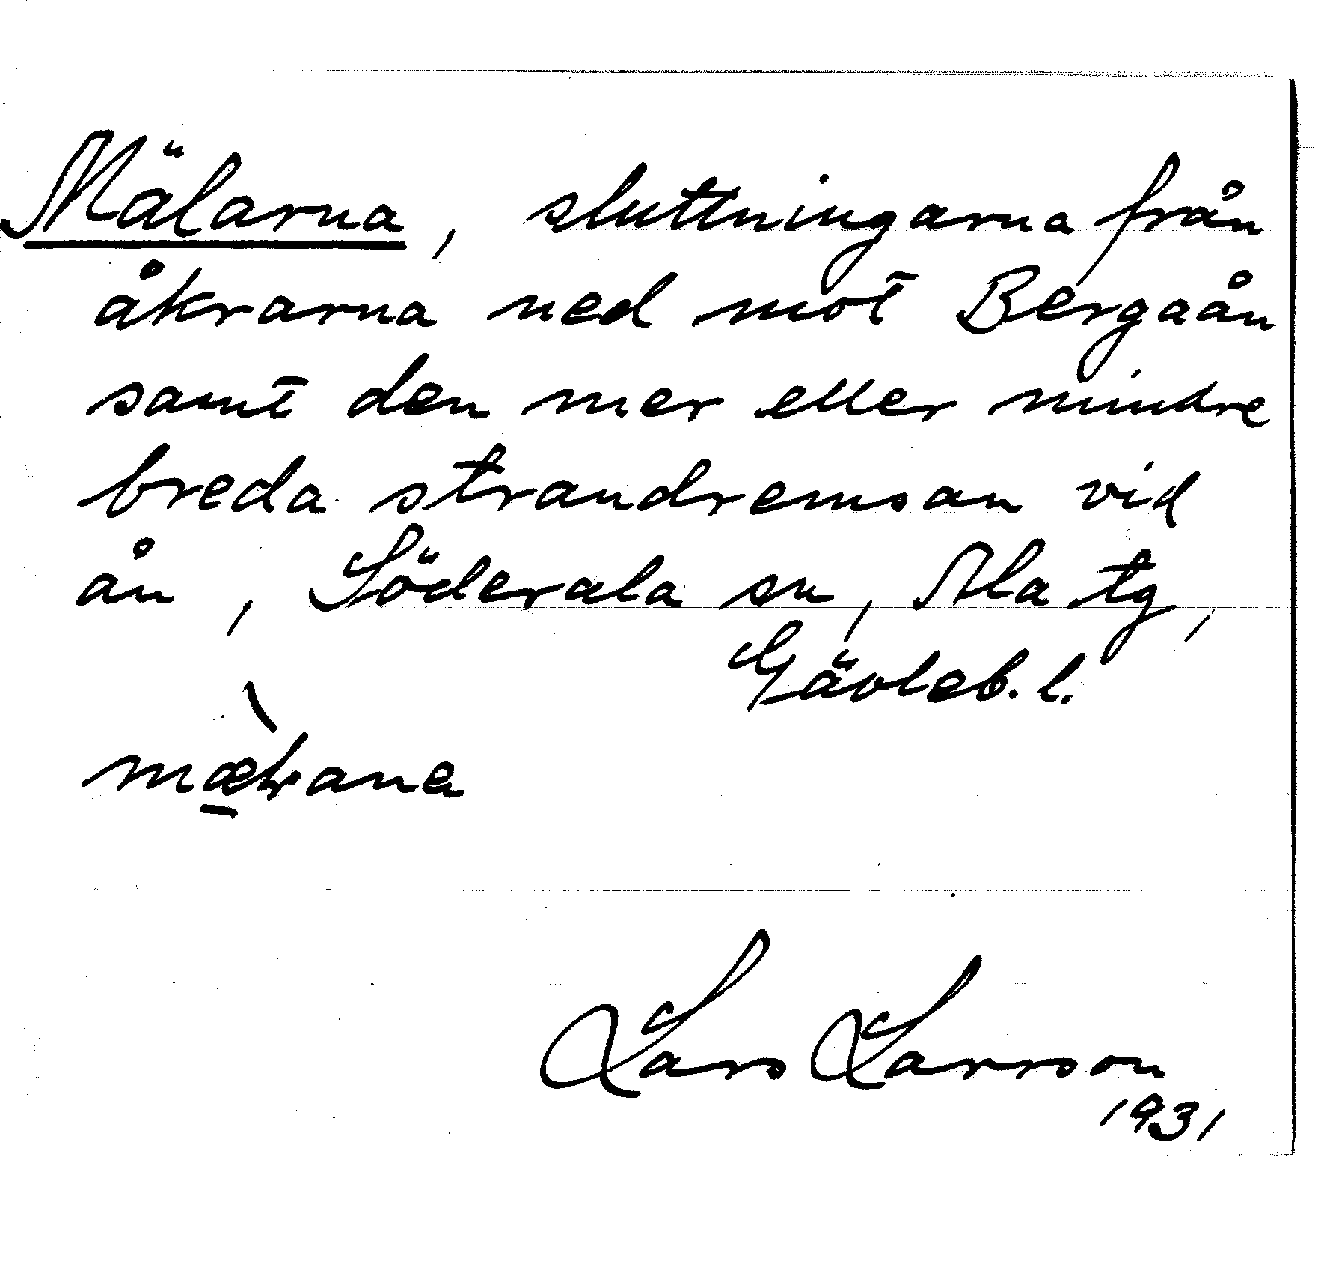 Mälarna, sluttningarna från
åkrarna ned mot Bergaån
samt den mer eller mindre
breda strandremsan vid
ån, Söderala sn, Ala tg,
Gävleb. l.
Lars Larsson
1931